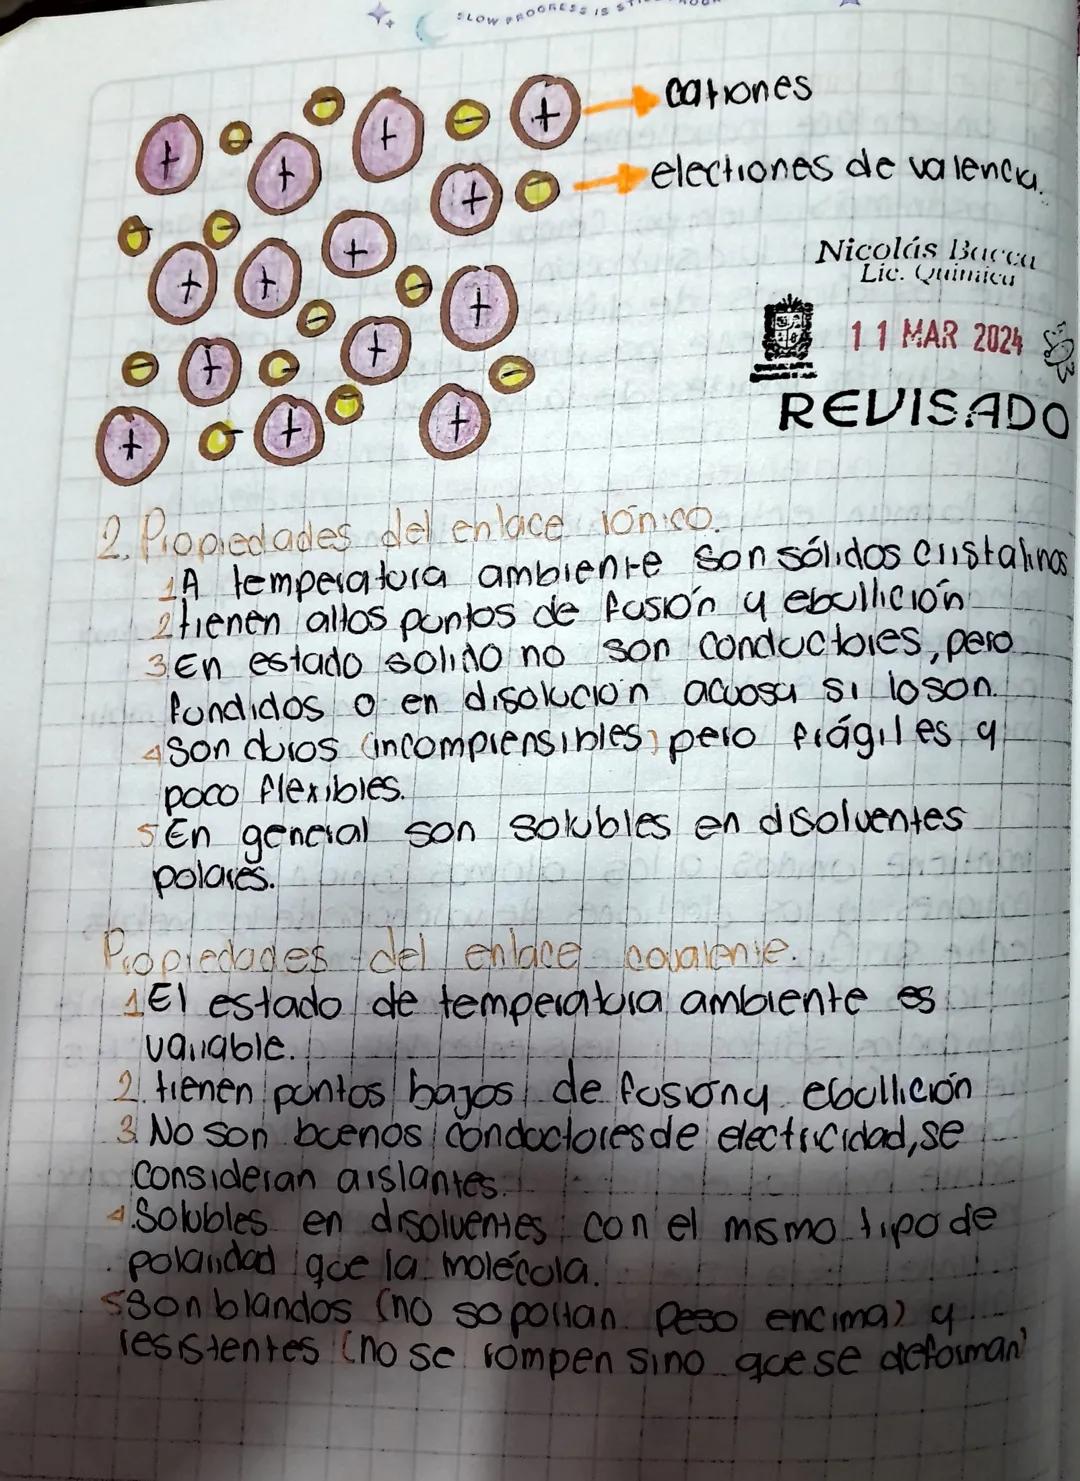 SLOW PROGRESS IS
cationes
electrones de valencia.
Nicolás Bacca
Lic. Química
11 MAR 2024
REVISADO
2. Propiedades del enlace iónico.
1 A temperatura ambiente son sólidos cristalinos
2 tienen altos puntos de fusión y ebullición
3 En estado solido no son conductores, pero
fundidos o en disolución acuosa si loson.
4 Son duros (incomprensibles) pero frágiles y
poco flexibles.
5 En general son solubles en disolventes
polares.
Propiedades del enlace covalente.
1 El estado de temperatura ambiente es
variable.
2. tienen puntos bajos de fusión y ebullición
3. No son buenos conductores de electricidad, se
consideran aislantes.
4. Solubles en disolventes con el mismo tipo de
polaridad que la molécula.
5 Son blandos (no soportan peso encima) y
resistentes (no se rompen sino que se deforman)